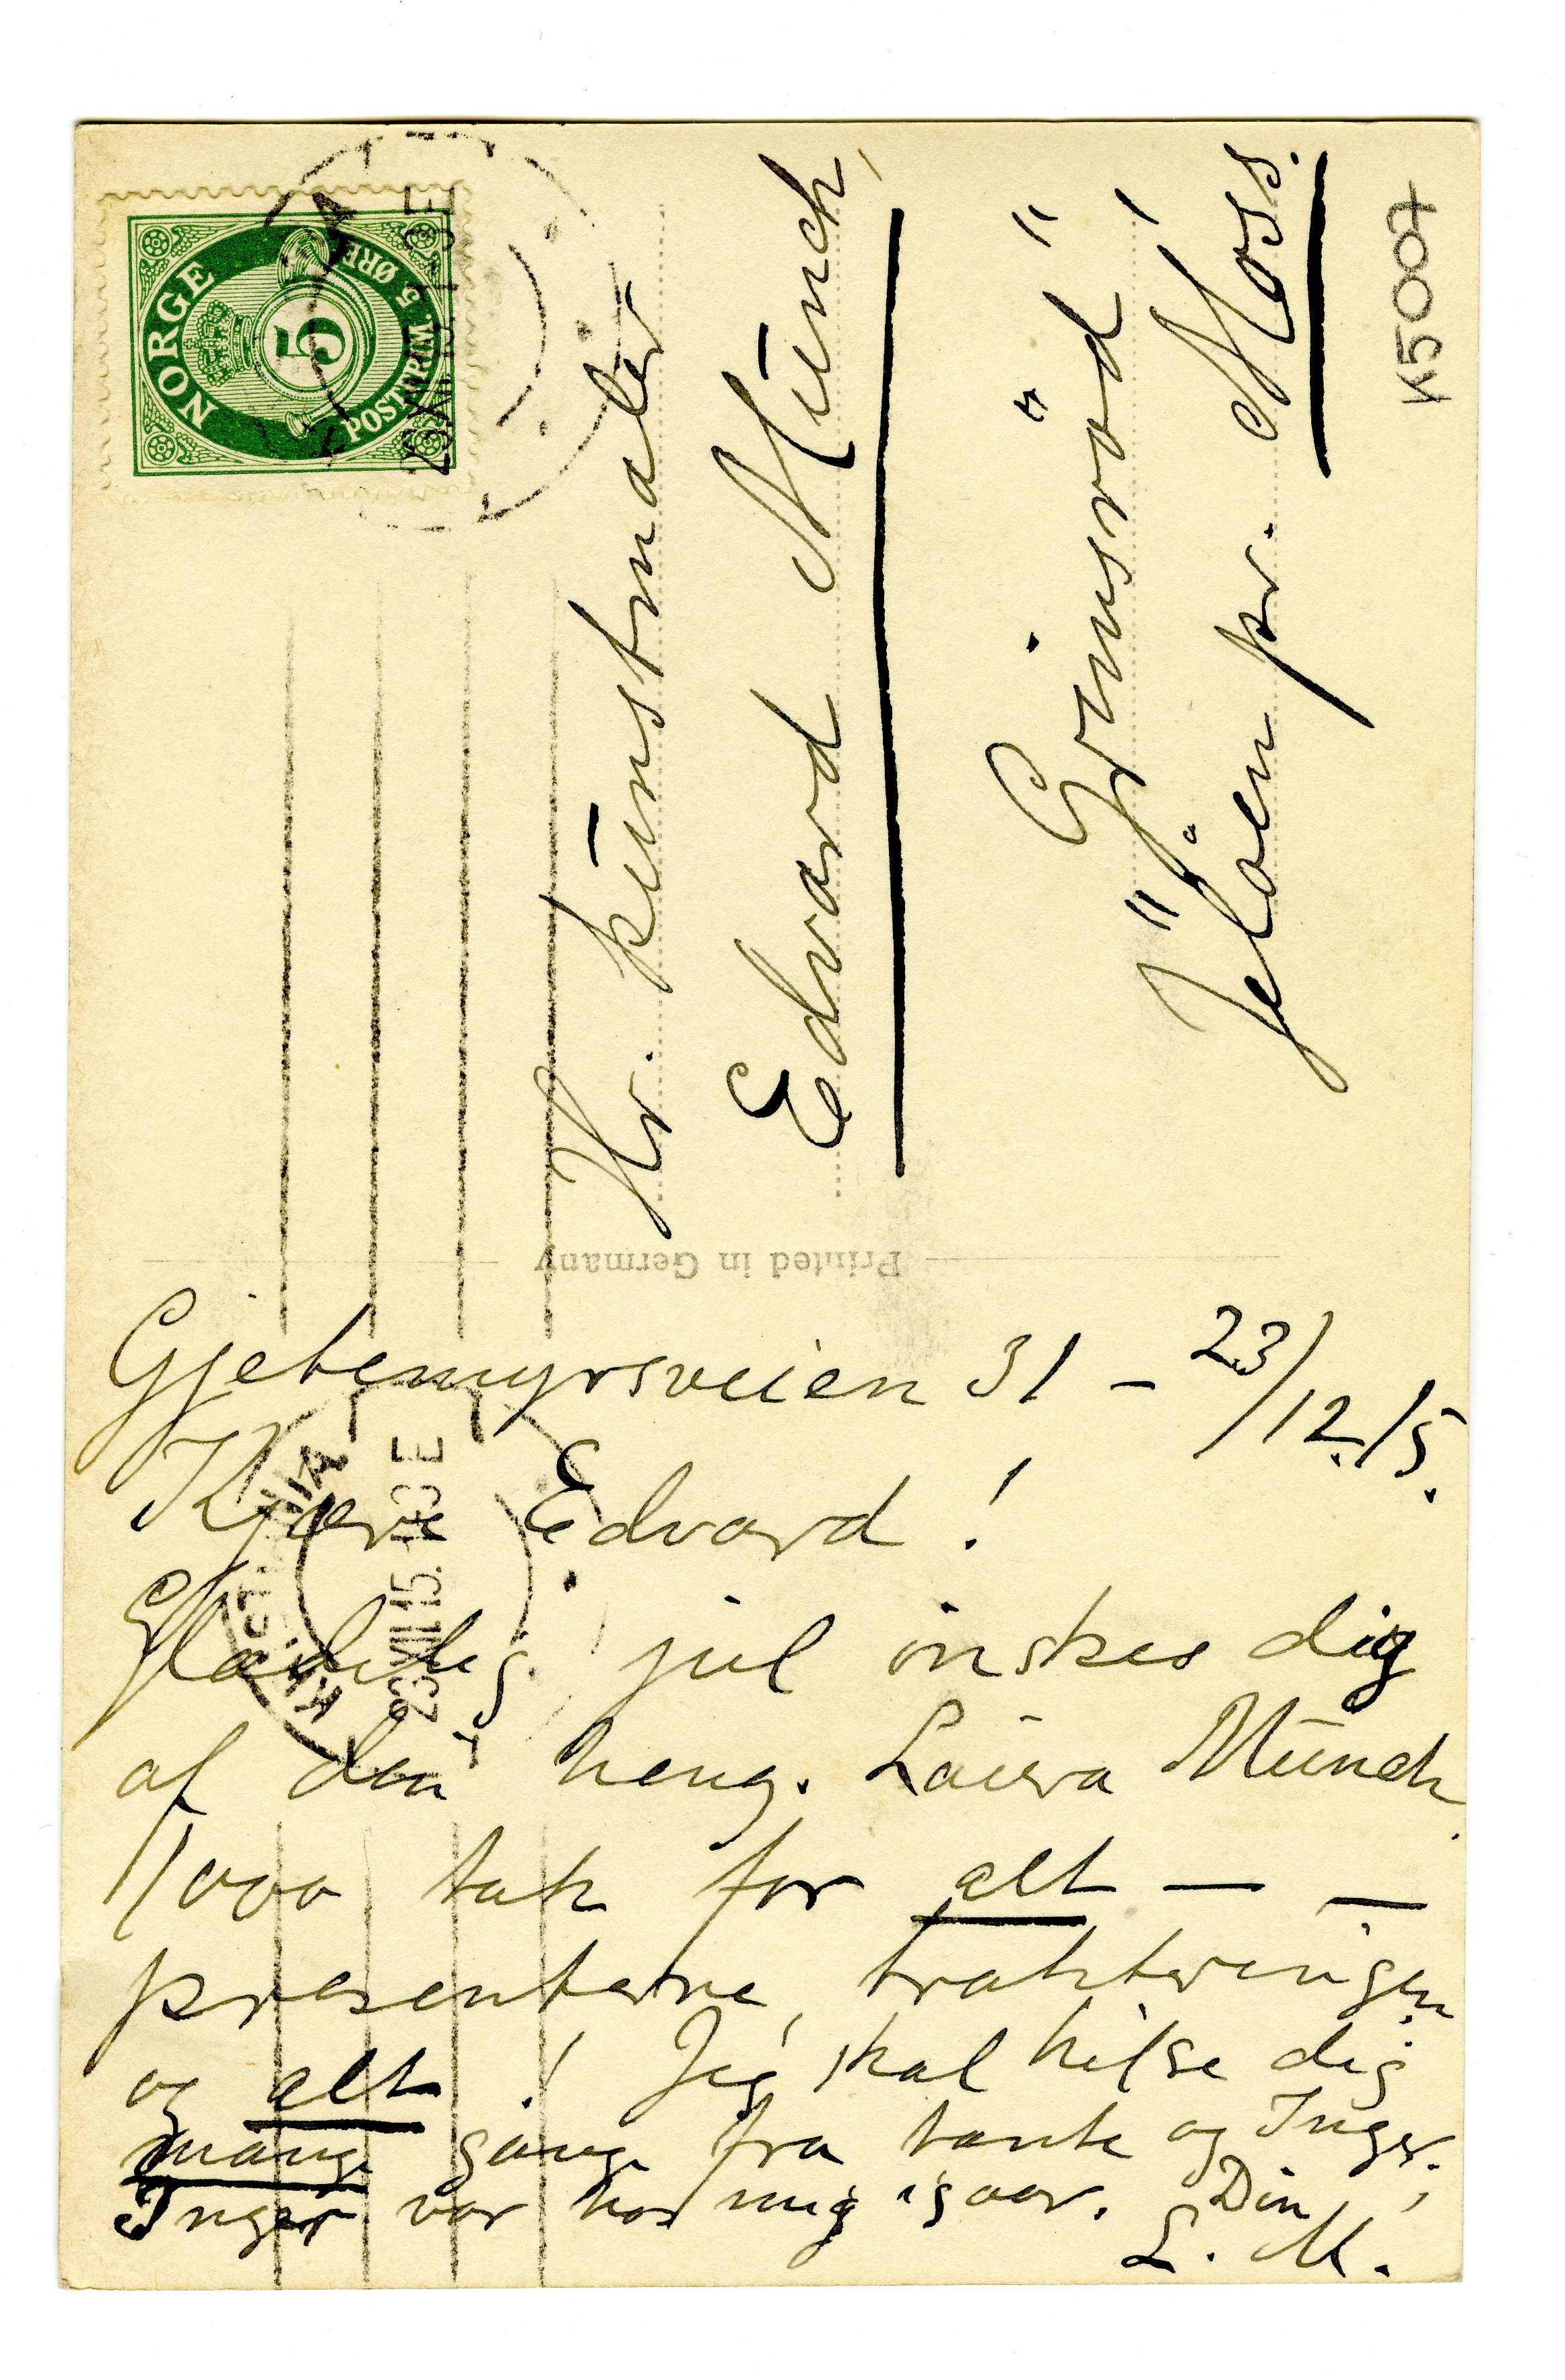 NORGE
POSTFRIM. 5 ØRE
5
Hr. kunstmaler
Edvard Munch,
"Grimsröd"
"Jelöen pr. Moss.
K5007
Printed in Germany
Gjetemyrsveien 31 – 23/12.15.
Kjære Edvard!
Glædelig jul önskes dig
af din heng. Laura Munch
1000 tak for alt — —
presenterne, trakteringen
og alt! Jeg skal hilse dig
mange gange fra tante og Inger.
Inger var hos mig igaar. Din
L. M.
KRISTIANIA
23 XII. 15. 11-3 E